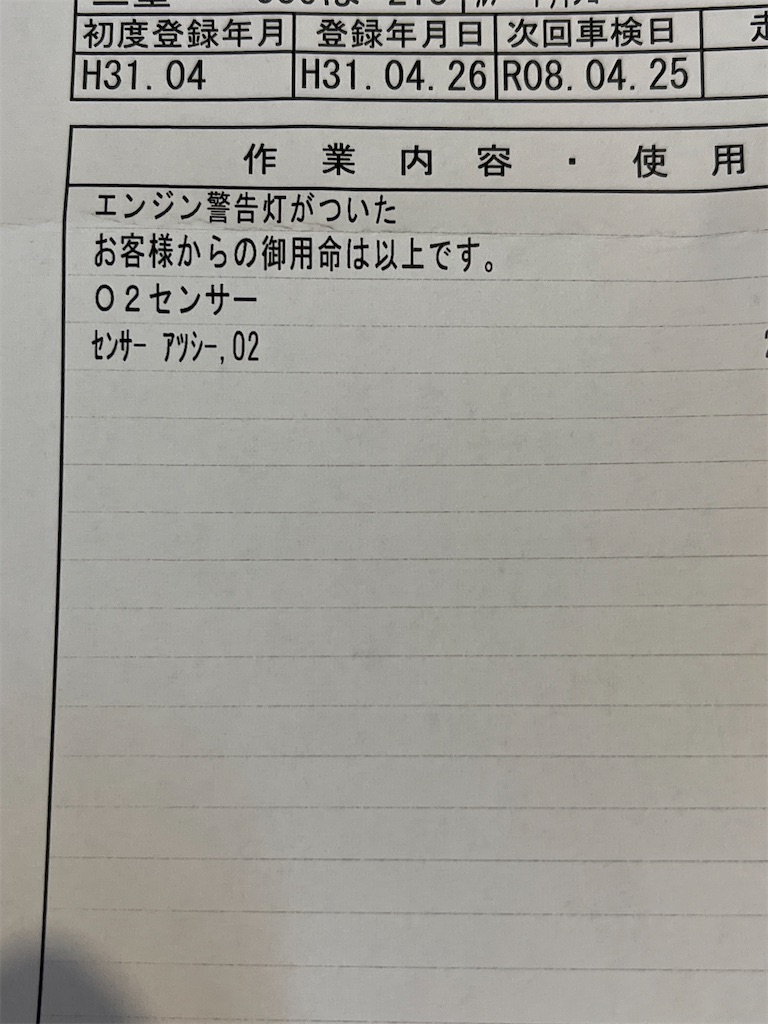 初度登録年月 登録年月日 次回車検日
H31.04 H31.04.26 R08.04.25
作業内容・使用
エンジン警告灯がついた
お客様からの御用命は以上です。
O2センサー
ｾﾝｻｰ ｱﾂｼｰ,O2